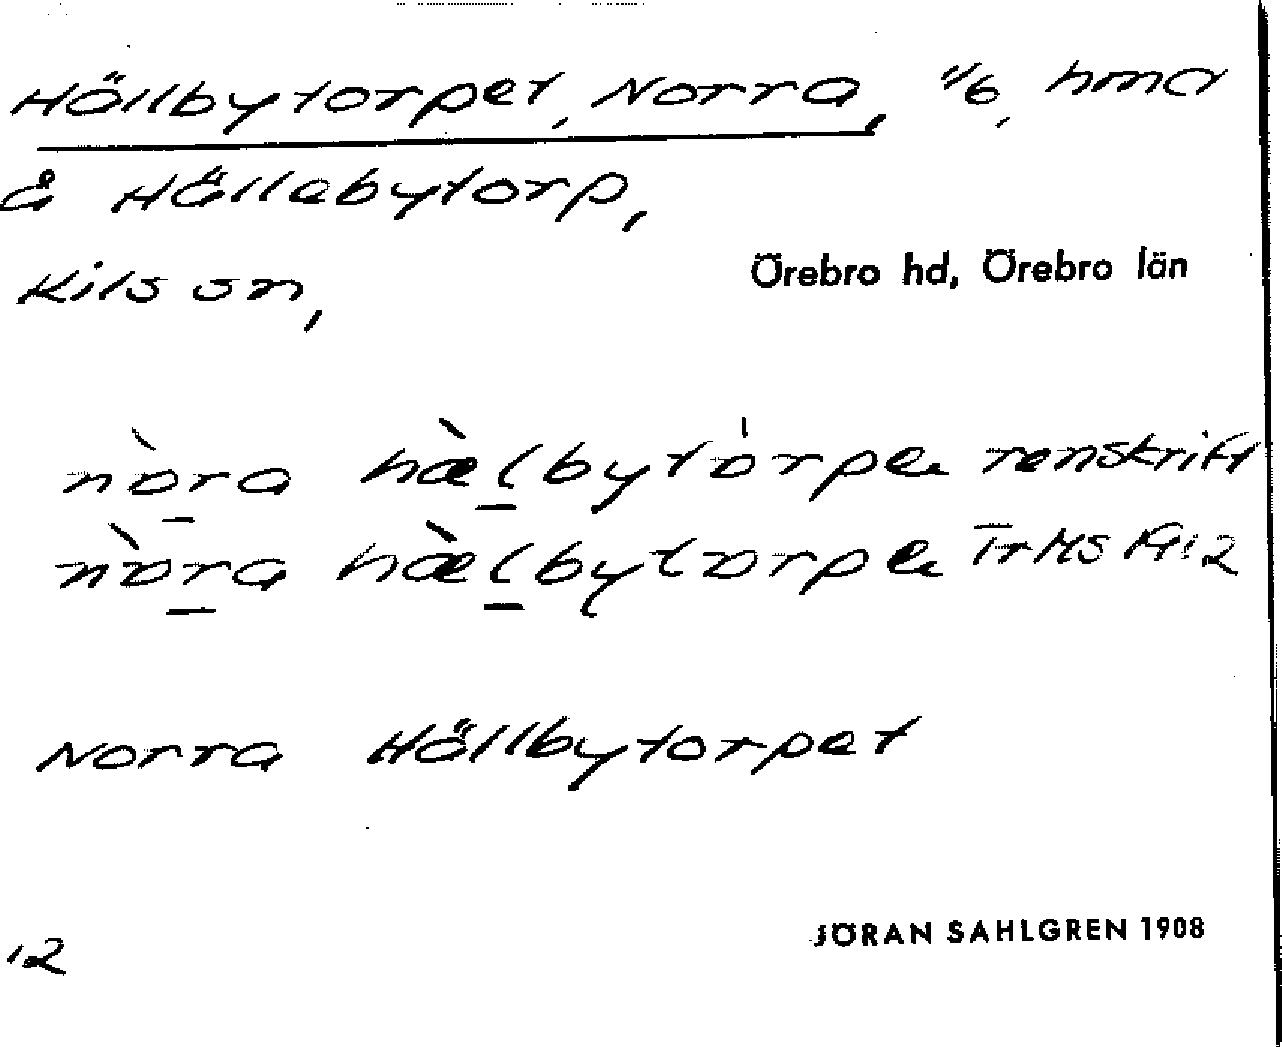 Hällbytorpet, Norra, 1/6, hmd
å Hällebytorp,
Kils sn,
Örebro hd, Örebro län
nòra hælbytórpe renskrift
nòra hælbytorpe TrMS 1912
Norra Hällbytorpet
JÖRAN SAHLGREN 1908
12